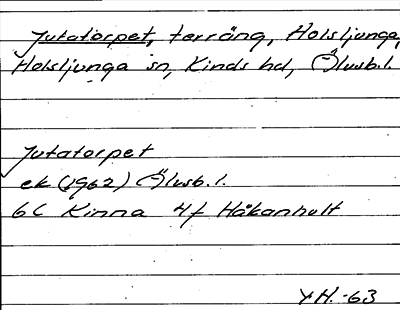 Jutatorpet, terräng, Holsljunga,
Holsljunga sn, Kinds hd, Älvsb.l.
Jutatorpet
ek (1962) Älvsb.l.
6C Kinna 4f Håkanhult
YH.-63